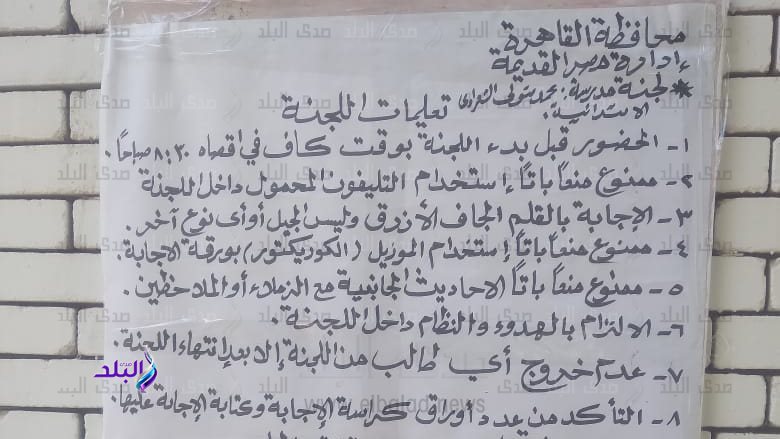 محافظة القاهرة
إدارة مصر القديمة
* لجنة مدرسة: محمد متولى الشعراوى الابتدائية:
تعليمات اللجنة
١- الحضور قبل بدء اللجنة بوقت كاف في اقصاه ٨،٣٠ صباحاً.
٢- ممنوع منعاً باتاً إستخدام التليفون المحمول داخل اللجنة
٣- الإجابة بالقلم الجاف الأزرق وليس الجيل أو أى نوع آخر.
٤- ممنوع منعاً باتاً إستخدام الموريل (الكوريكتور) بورقة الإجابة.
٥- ممنوع منعاً باتاً الاحاديث الجانبية مع الزملاء أو الملاحظين.
٦- الالتزام بالهدوء والنظام داخل اللجنة.
٧- عدم خروج أي طالب من اللجنة إلا بعد إنتهاء اللجنة.
٨- التأكد من عدد أوراق كراسة الإجابة وكتابة الإجابة عليها.
صدى البلد
www.elbalad.news